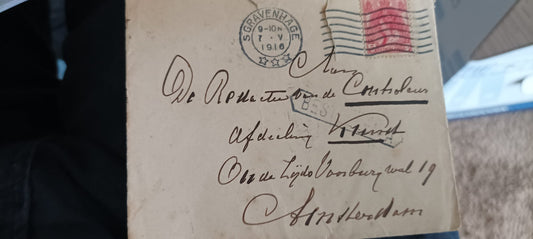 'S GRAVENHAGE
9-10 N
7 . V
1916
Aan
De Redactie van de Controleur
BES
afdeeling Kunst
Oude Zijds Voorburgwal 19
Amsterdam